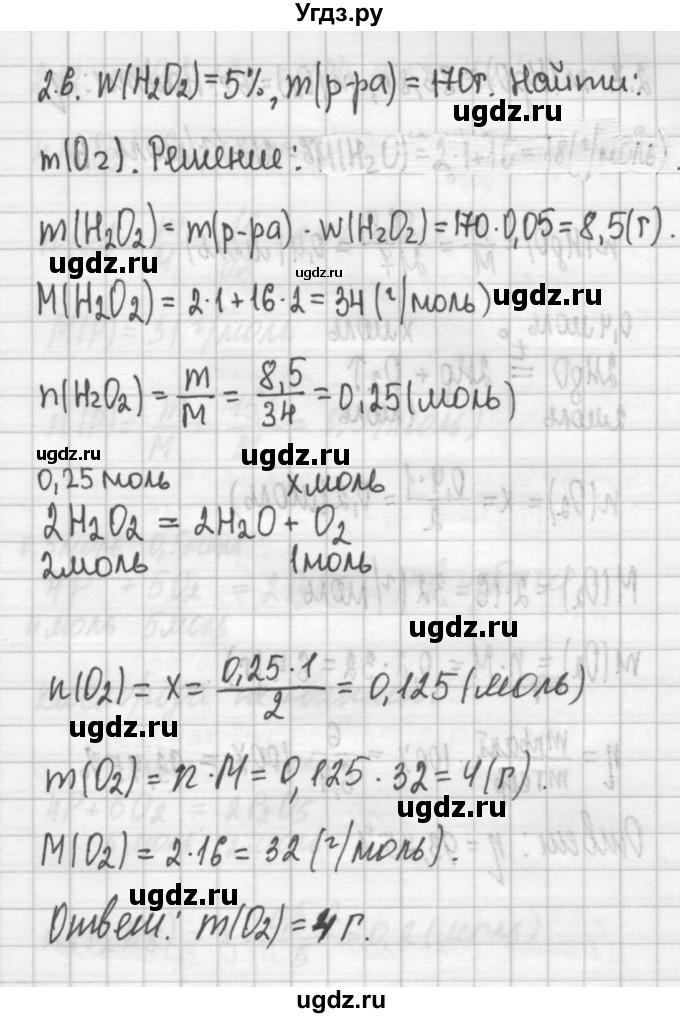 Угдз.ру
2.в. W(H₂O₂) = 5%, m(р-ра) = 170г. Найти:
ugdz.ru
m(O₂). Решение:
m(H₂O₂) = m(р-ра) · w(H₂O₂) = 170 · 0,05 = 8,5(г).
ugdz.ru ugdz.ru
M(H₂O₂) = 2·1 + 16·2 = 34 (г/моль)
ugdz.ru
n(H₂O₂) = m/M = 8,5/34 = 0,25 (моль)
ugdz.ru ugdz.ru
0,25 моль x моль
2H₂O₂ = 2H₂O + O₂
2моль 1моль
ugdz.ru
n(O₂) = x = 0,25·1/2 = 0,125 (моль)
ugdz.ru
m(O₂) = n·M = 0,125 · 32 = 4(г).
ugdz.ru
M(O₂) = 2·16 = 32 (г/моль).
ugdz.ru
Ответ: m(O₂) = 4 г.
ugdz.ru